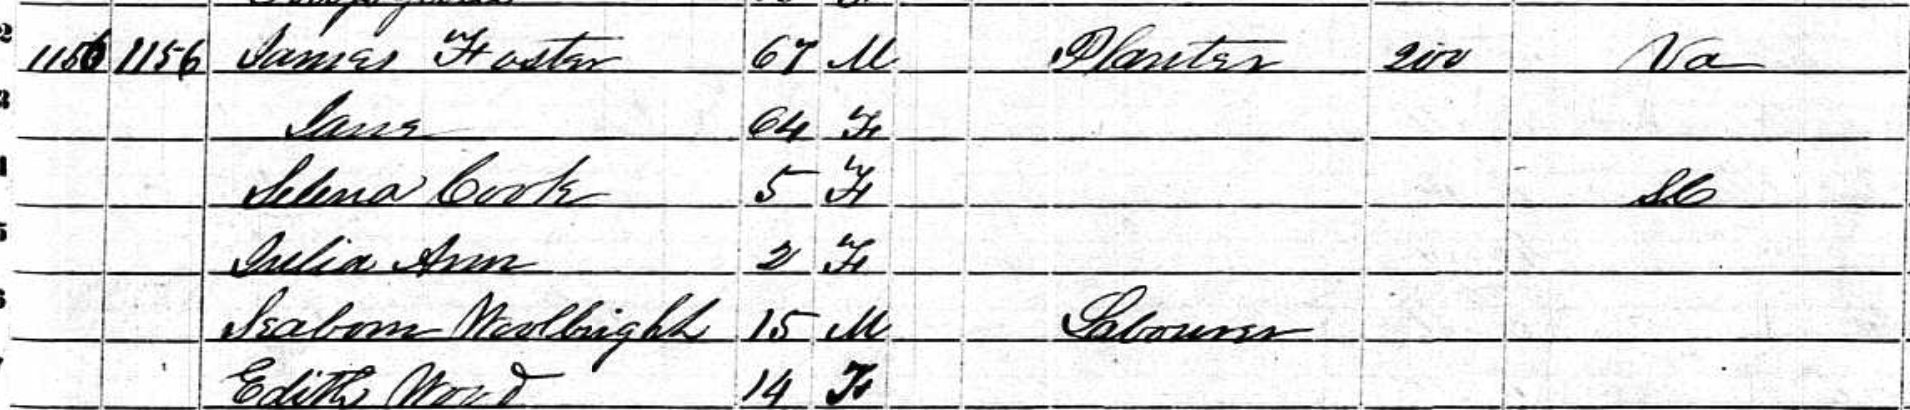 2 1156 1156 James Foster 67 M Planter 200 Va
Jane 64 F
Selena Cook 5 F SC
5 Julia Ann 2 F
6 Seaborn Woolbright 15 M Labourer
Edith Word 14 F